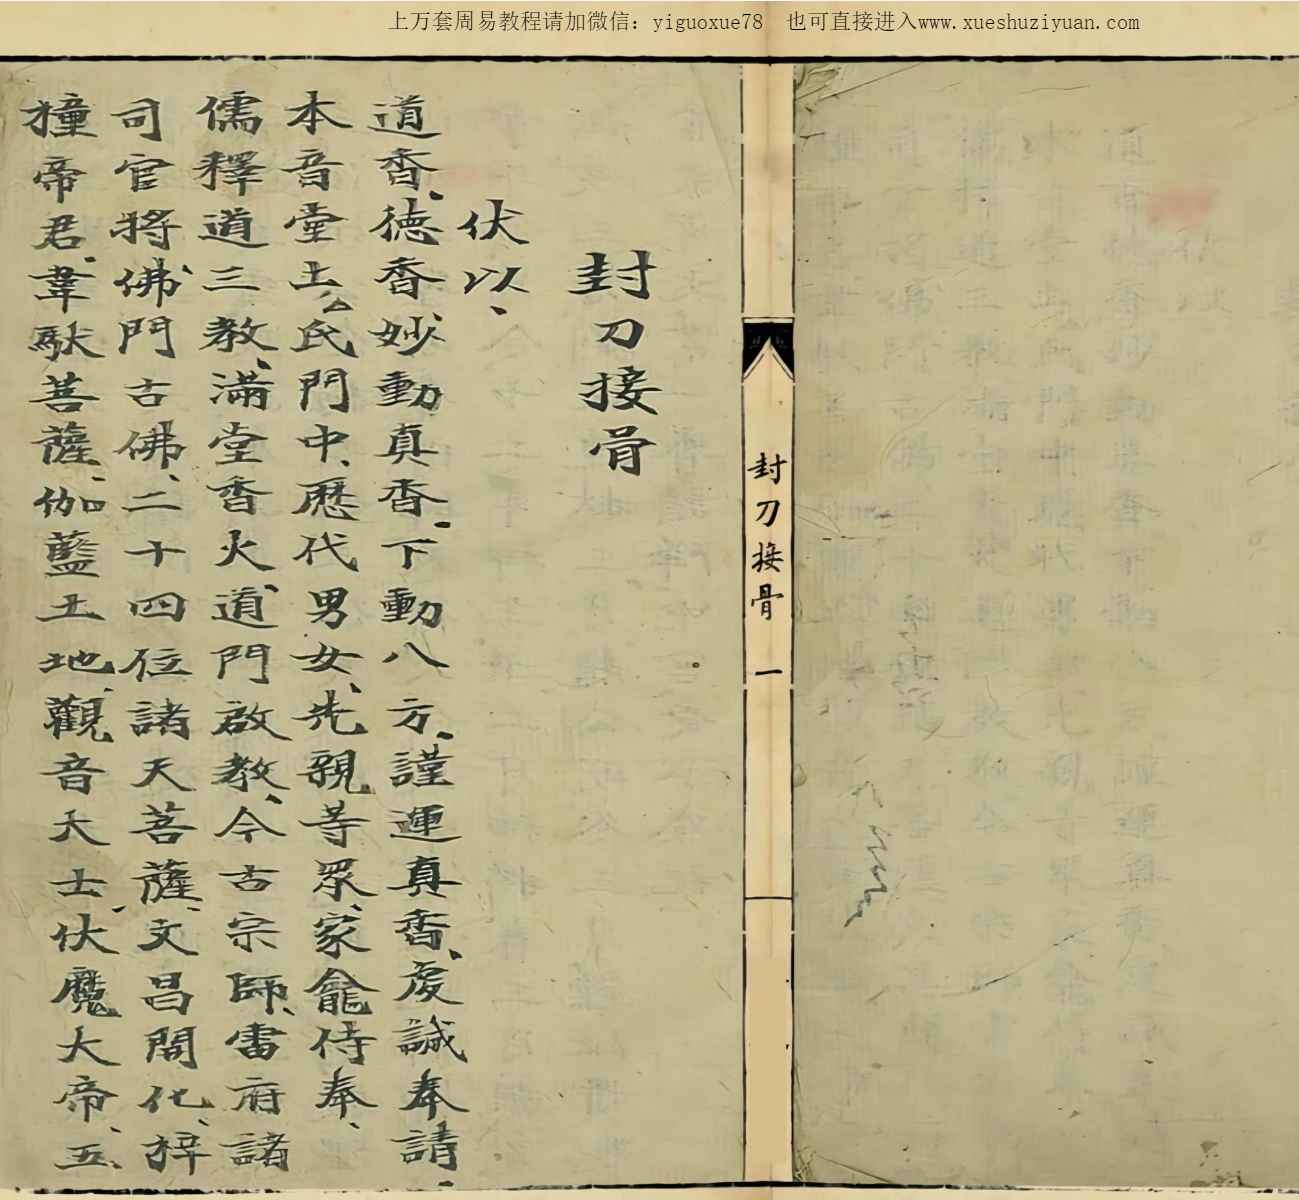 上万套周易教程请加微信：yiguoxue78　也可直接进入www.xueshuziyuan.com
封刀接骨
伏以、
道香、德香、妙動真香、下動八方、謹運真香、虔誠奉請、
本音堂上厶氏門中、歷代男女、先親等眾、家龕侍奉、
儒釋道三教、滿堂香火、道門啟教、今古宗師、雷府諸
司官將、佛門古佛、二十四位諸天菩薩、文昌開化、梓
潼帝君、韋馱菩薩、伽藍土地、觀音大士、伏魔大帝、五
封刀接骨　一